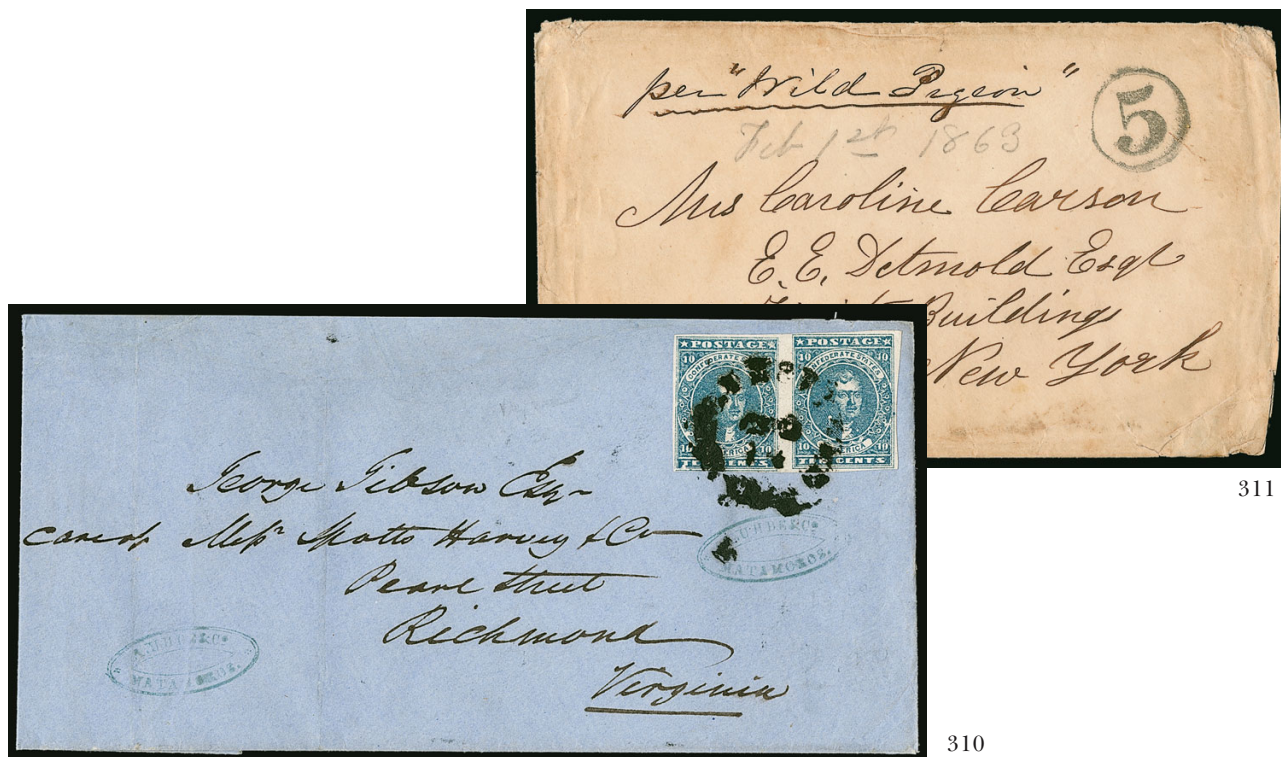 per "Wild Pigeon"
Feb 1st 1863
5
Mrs Caroline Carson
E. E. Detmold Esqr
Buildings
New York
311
★POSTAGE★ ★POSTAGE★
10 CONFEDERATE STATES 10 10 CONFEDERATE STATES 10
10 AMERICA 10 10 AMERICA 10
TEN CENTS TEN CENTS
George Gibson Esq
care of Messrs Harvey & Co
Pearl Street
Richmond
Virginia
MATAMOROS.
MATAMOROS.
310